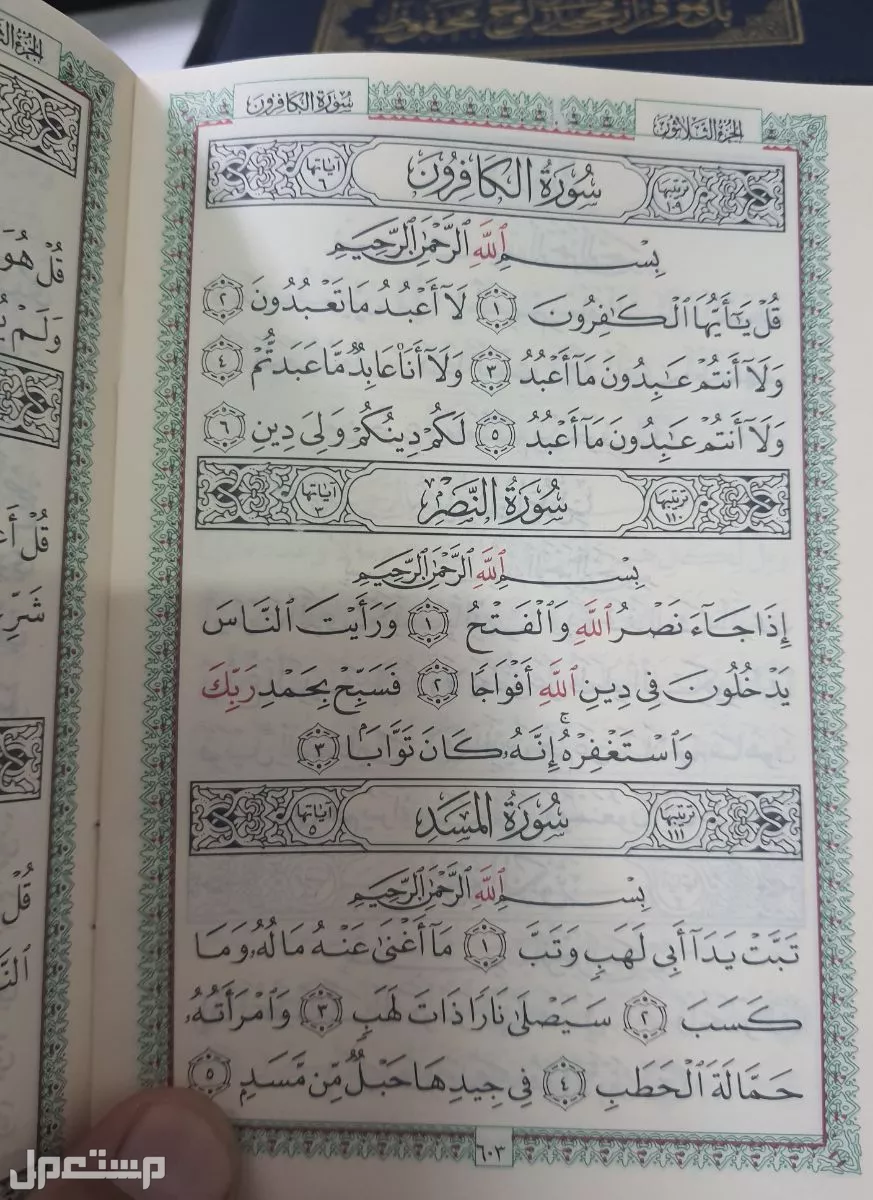 بل هو قرآن مجيد في لوح محفوظ
سورة الكافرون
الجزء الثلاثون
ترتيبها ١٠٩
سُورَةُ الكَافِرُونَ
آياتها ٦
بِسْمِ ٱللَّهِ ٱلرَّحْمَٰنِ ٱلرَّحِيمِ
قُلْ يَٰٓأَيُّهَا ٱلْكَٰفِرُونَ ١ لَآ أَعْبُدُ مَا تَعْبُدُونَ ٢
وَلَآ أَنتُمْ عَٰبِدُونَ مَآ أَعْبُدُ ٣ وَلَآ أَنَا۠ عَابِدٌ مَّا عَبَدتُّمْ ٤
وَلَآ أَنتُمْ عَٰبِدُونَ مَآ أَعْبُدُ ٥ لَكُمْ دِينُكُمْ وَلِىَ دِينِ ٦
ترتيبها ١١٠
سُورَةُ النَّصْرِ
آياتها ٣
بِسْمِ ٱللَّهِ ٱلرَّحْمَٰنِ ٱلرَّحِيمِ
إِذَا جَآءَ نَصْرُ ٱللَّهِ وَٱلْفَتْحُ ١ وَرَأَيْتَ ٱلنَّاسَ
يَدْخُلُونَ فِى دِينِ ٱللَّهِ أَفْوَاجًا ٢ فَسَبِّحْ بِحَمْدِ رَبِّكَ
وَٱسْتَغْفِرْهُ ۚ إِنَّهُۥ كَانَ تَوَّابًۢا ٣
ترتيبها ١١١
سُورَةُ المَسَدِ
آياتها ٥
بِسْمِ ٱللَّهِ ٱلرَّحْمَٰنِ ٱلرَّحِيمِ
تَبَّتْ يَدَآ أَبِى لَهَبٍ وَتَبَّ ١ مَآ أَغْنَىٰ عَنْهُ مَالُهُۥ وَمَا
كَسَبَ ٢ سَيَصْلَىٰ نَارًا ذَاتَ لَهَبٍ ٣ وَٱمْرَأَتُهُۥ
حَمَّالَةَ ٱلْحَطَبِ ٤ فِى جِيدِهَا حَبْلٌ مِّن مَّسَدٍۭ ٥
٦٠٣
قُلْ هُوَ
وَلَمْ
قُلْ
قُلْ
مستعمل